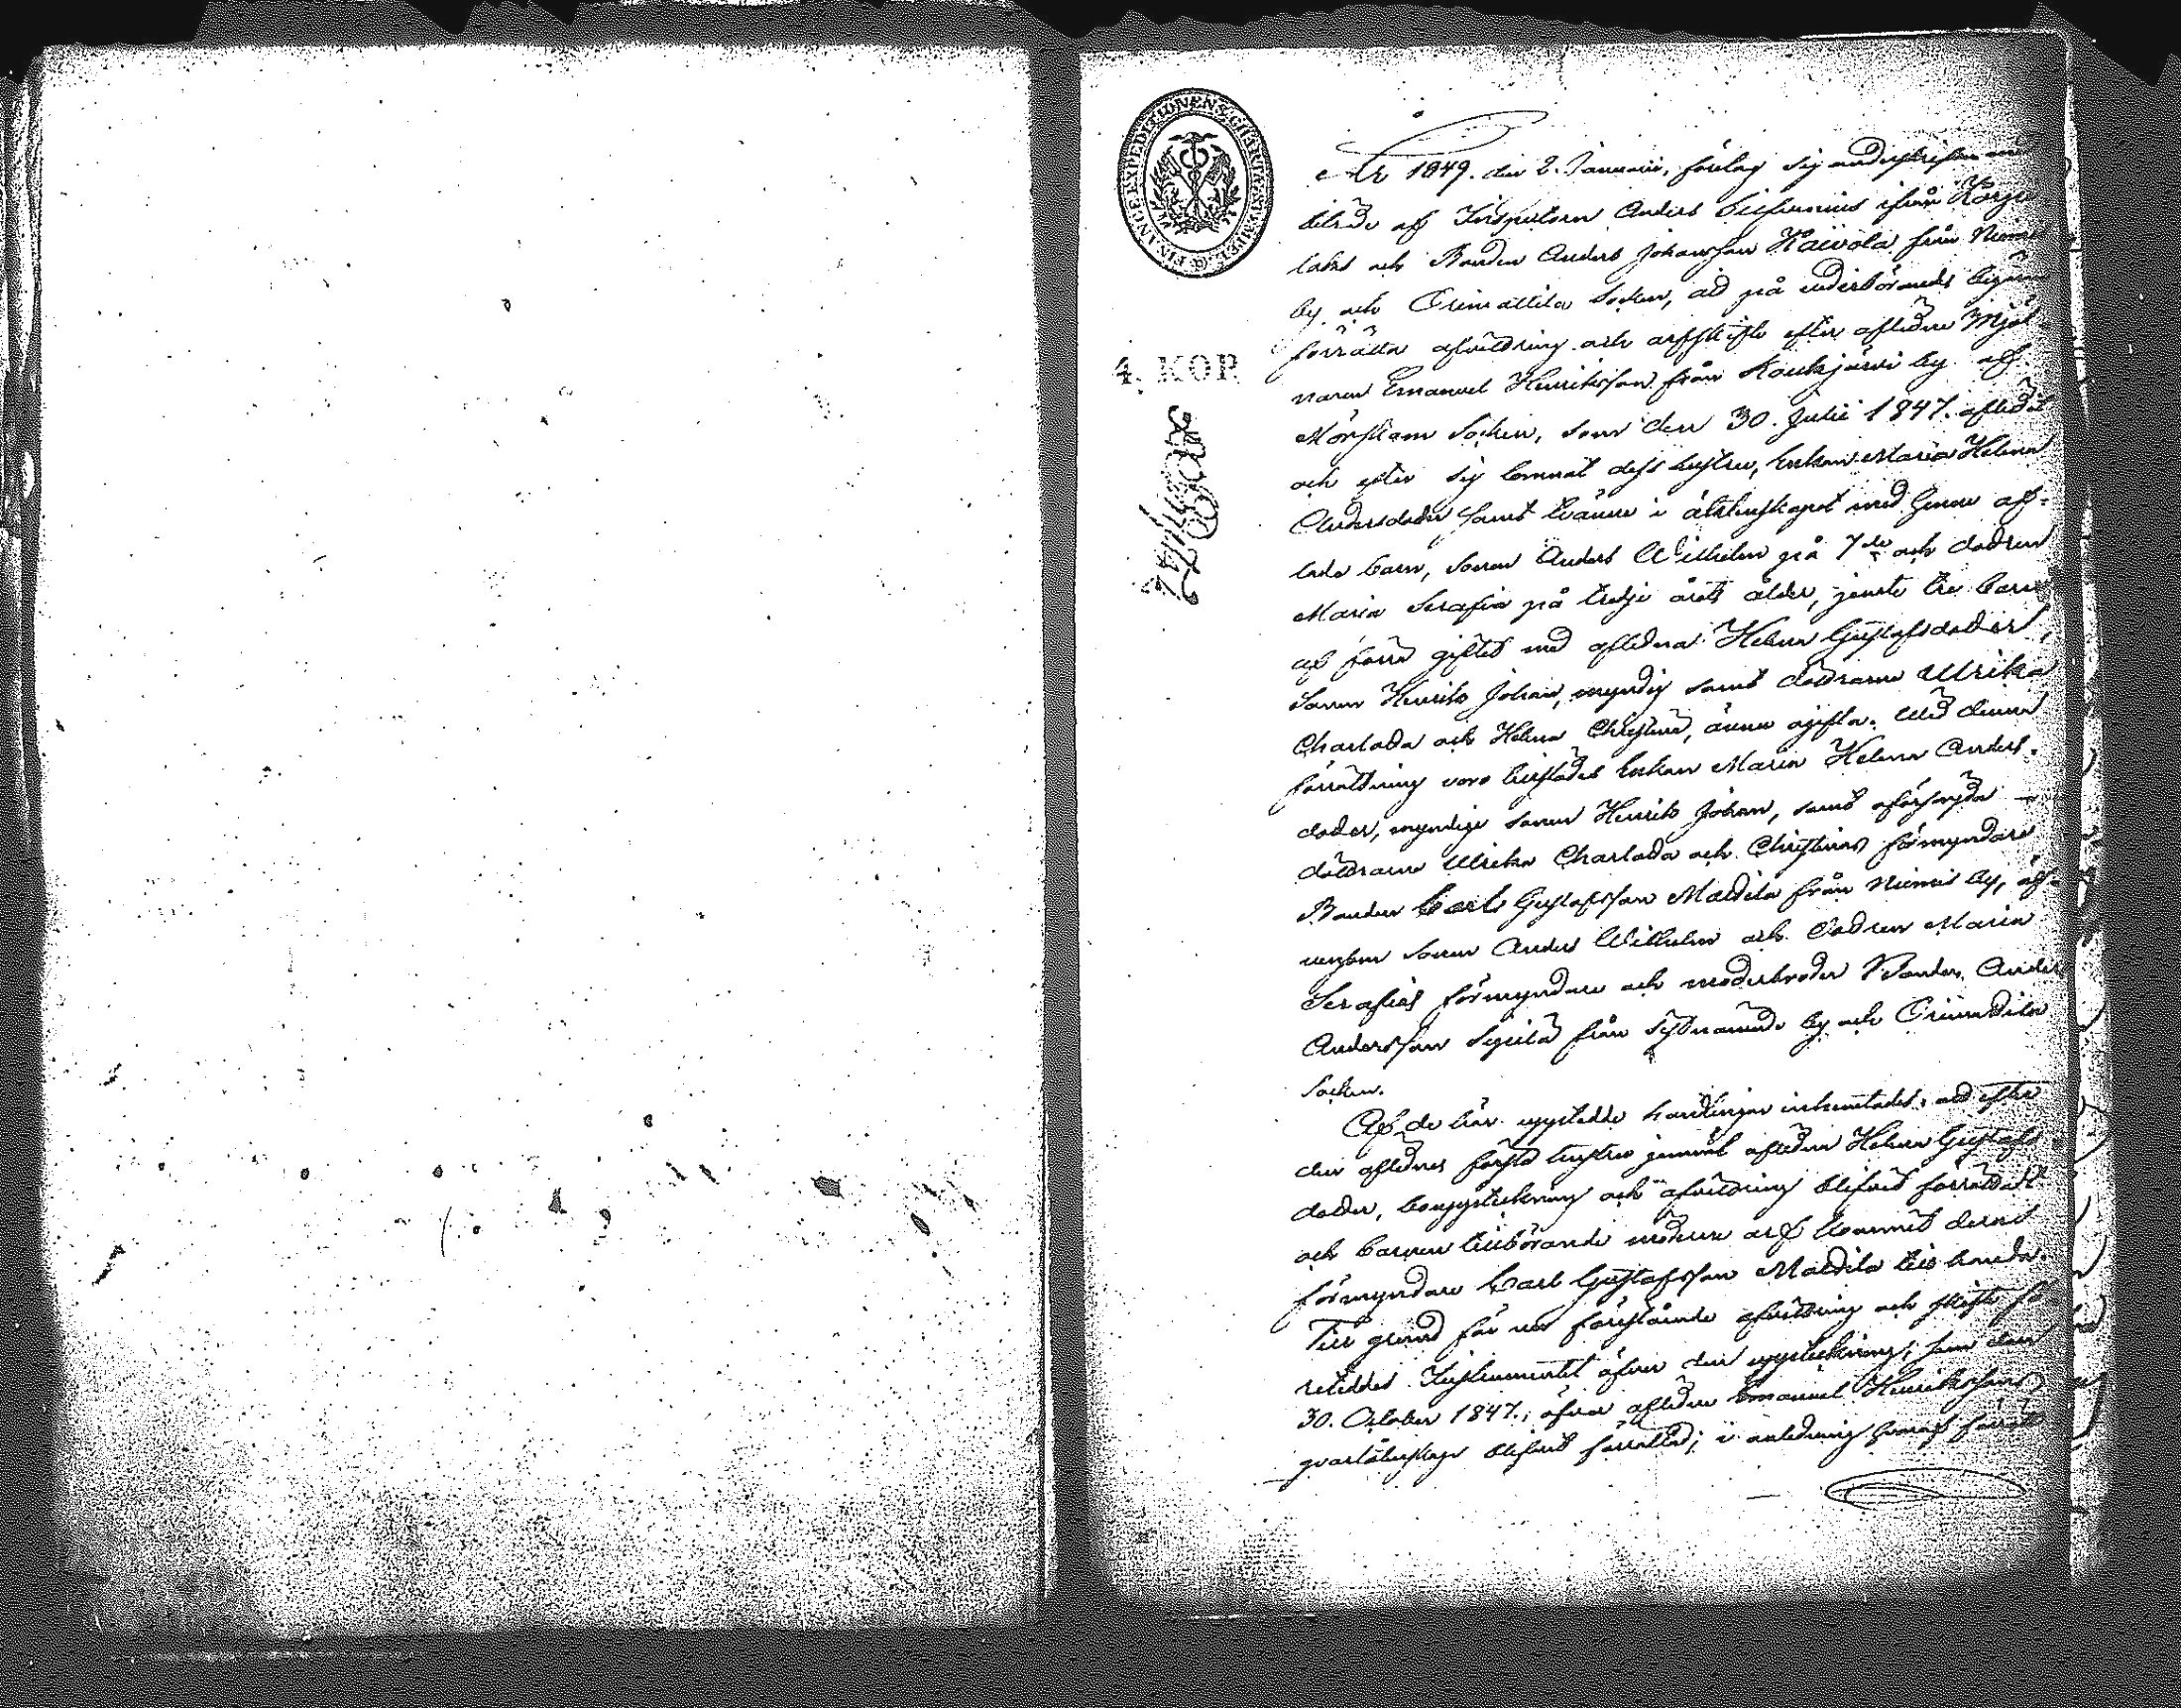 FINANCE EXPEDITIONENS CHARTÆ STEMPEL
4. KOP.
År 1849. den 2. Januarii, företog sig undertecknad med
biträde af Inspectoren Anders
laks och Bonden Anders Johansson Kaivola från Niemi
by och Orimattila Socken, att på vederbörandes begäran
förrätta afvittring och arfskifte efter aflidne Mjöl-
naren Emanuel Henriksson från Koukjärvi by af
Mörskom Socken, som den 30. Julii 1847. aflidit
och efter sig lemnat dess hustru, Enkan Maria Helena
Andersdotter samt tvänne i äktenskapet med henne af-
lade barn, sonen Anders Wilhelm på 7de och dottren
Maria Serafia på tredje årets ålder, jemte tre barn
af förra giftet med aflidna Helena Gustafsdotter,
Sonen Henrik Johan, myndig samt döttrarne Ulrika
Charlotta och Helena Christina, ännu ogifta. Vid denna
förrättning voro tillstädes Enkan Maria Helena Anders-
dotter, myndige sonen Henrik Johan, samt oförsrgda
döttrarne Ulrika Charlotta och Christinas förmyndare
Bonden Carl Gustafsson Mattila från Niemis by, äf-
vensom sonen Anders Wilhelm och dottren Maria
Serafias förmyndare och moderbroder Bonden Anders
Andersson från by och Orimattila
Socken.
Af de här uppstedde handlingar inhemtades, att efter
den aflidnes första hustru jemväl aflidna Helena Gustafs-
dotter, bouppteckning och afvittring blifvit förrättadt
och barnen tillhörande möderne arf kommit deras
förmyndare Carl Gustafsson Mattila till handa.
Till grund för nu förestående afvittring och skifte fö-
reteddes Instrumentet öfver den uppteckning, som den
30. October 1847., öfver aflidne Emanuel Henrikssons
qvarlåtenskap blifvit förrättad; i anledning hvaraf förrätt